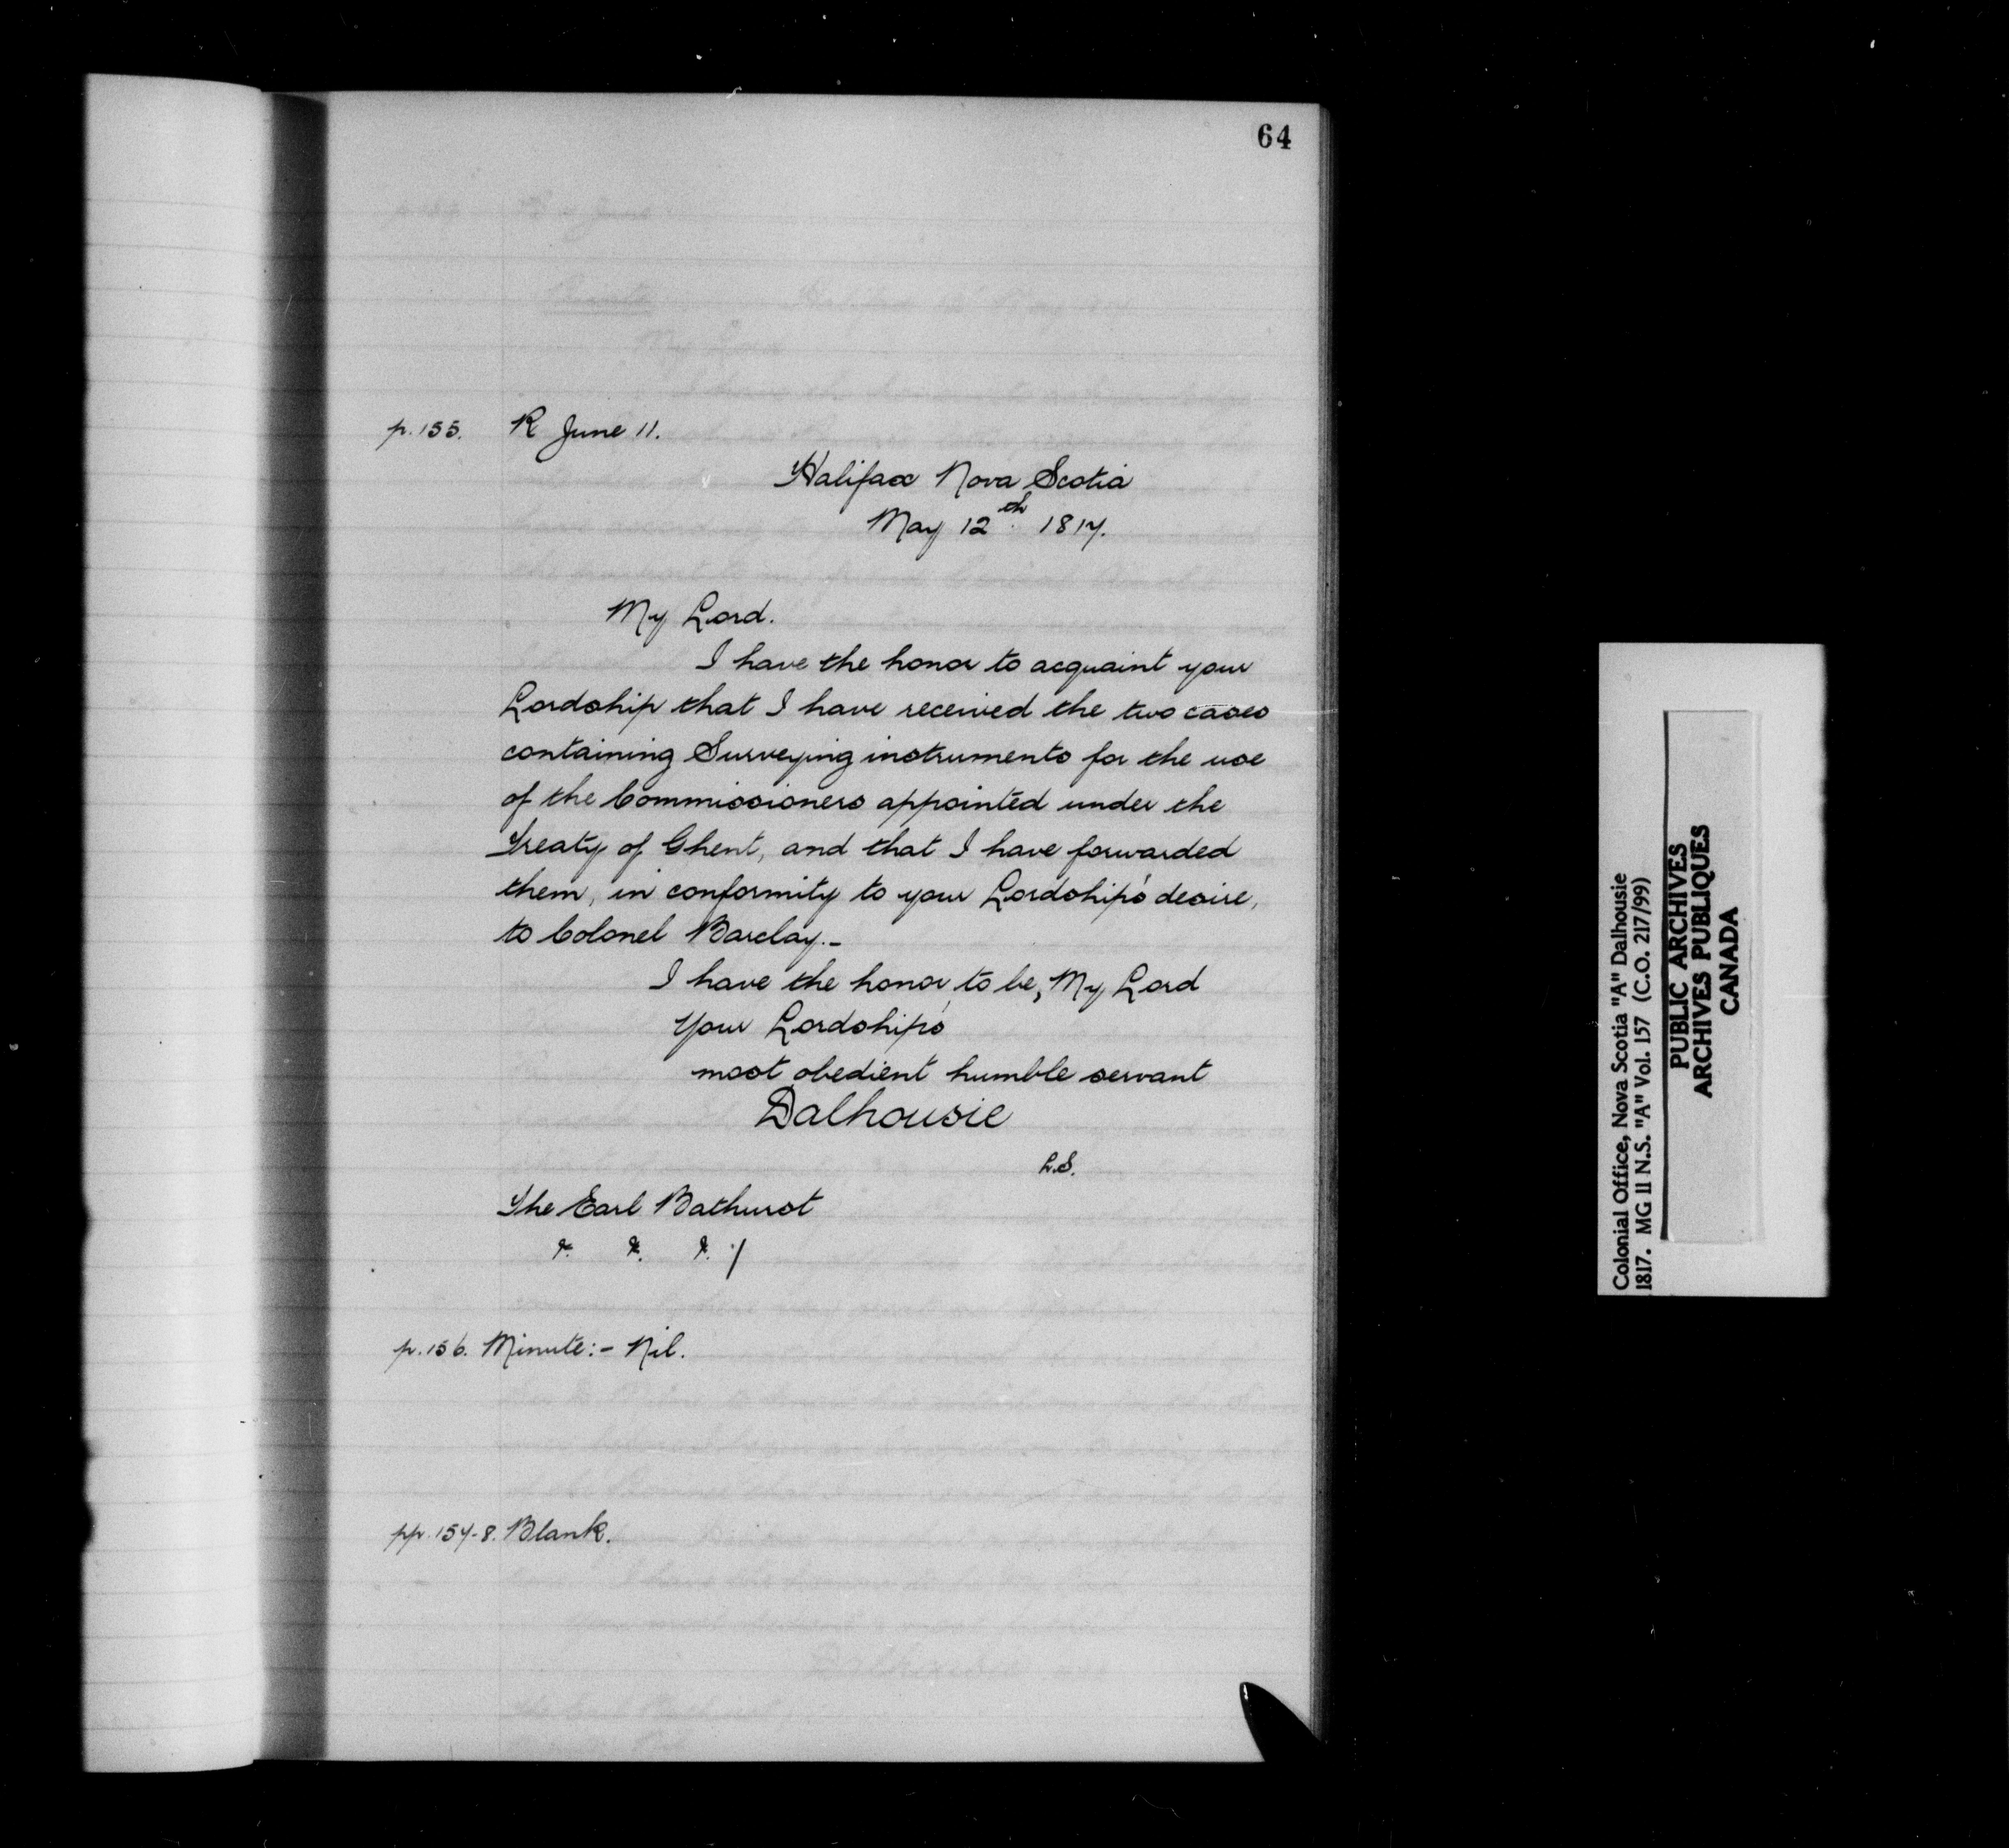 64
p.155. R June 11.
Halifax Nova Scotia
May 12th. 1817.
My Lord.
I have the honor to acquaint your
Lordship that I have received the two cases
containing Surveying instruments for the use
of the Commissioners appointed under the
Treaty of Ghent, and that I have forwarded
them, in conformity to your Lordship's desire,
to Colonel Barclay.-
I have the honor to be, My Lord
Your Lordship's
most obedient humble servant
Dalhousie
L.S.
The Earl Bathurst
&. &. &. /
p.156. Minute:- Nil.
pp.157-8. Blank.
Colonial Office, Nova Scotia "A" Dalhousie
1817. MG 11 N.S. "A" Vol. 157 (C.O. 217/99)
PUBLIC ARCHIVES
ARCHIVES PUBLIQUES
CANADA